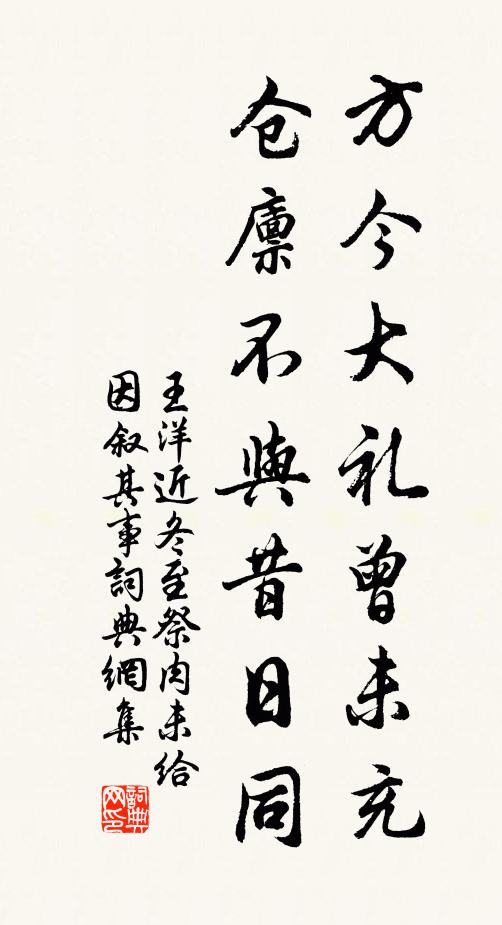 方今大礼曾未充
仓廪不與昔日同
王洋近冬至祭肉未给
因叙其事詞典網集
詞典
网印